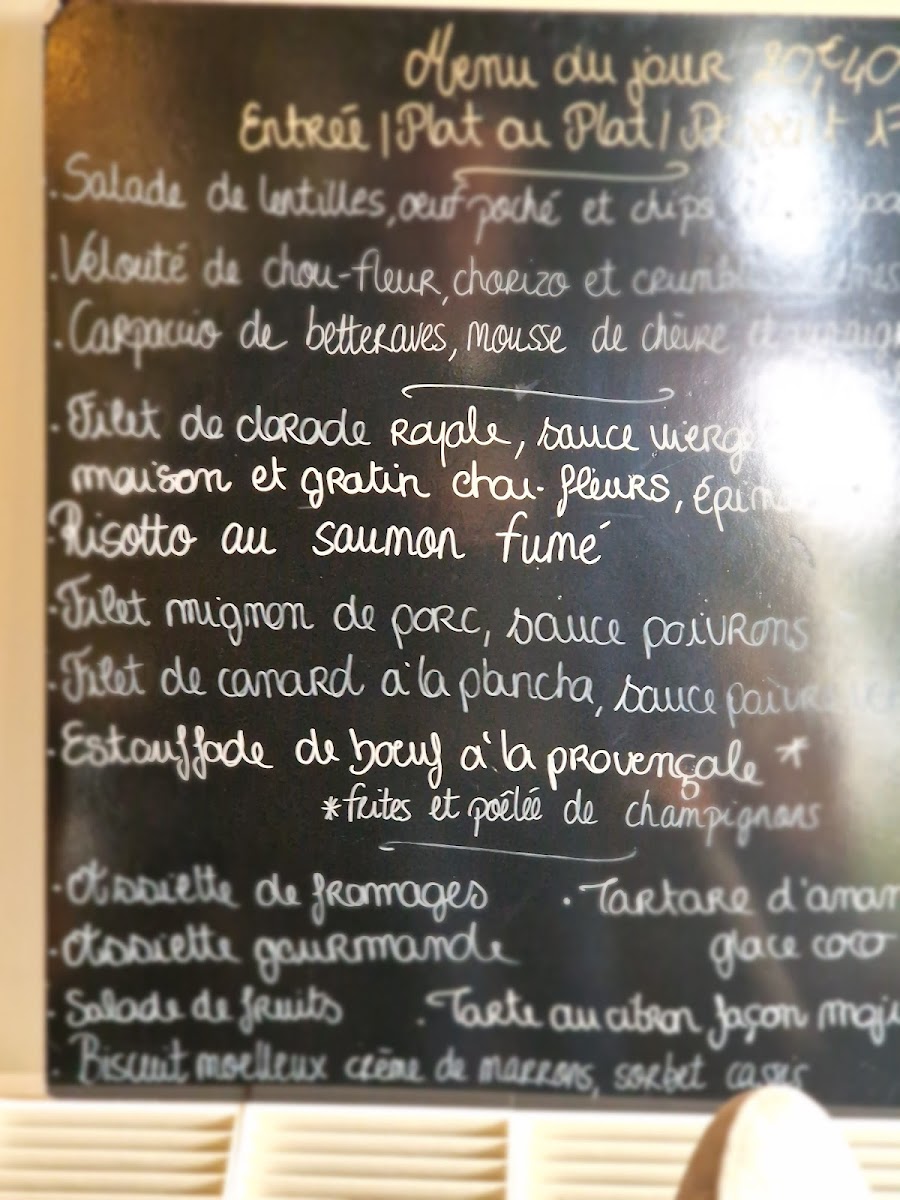 Menu du jour 20,€40
Entrée | Plat ou Plat | Dessert 17
. Salade de lentilles, oeuf poché et chips
. Velouté de chou-fleur, chorizo et
. Carpaccio de betteraves, mousse de chèvre
. Filet de dorade royale, sauce vierge
maison et gratin chou-fleurs,
. Risotto au saumon fumé
. Filet mignon de porc, sauce poivrons
. Filet de canard à la plancha, sauce
. Estouffade de boeuf à la provençale *
*frites et poêlée de champignons
. Assiette de fromages . Tartare d'anan
. Assiette gourmande glace coco
. Salade de fruits . Tarte au citron façon moji
. Biscuit moelleux crème de marrons, sorbet cassis